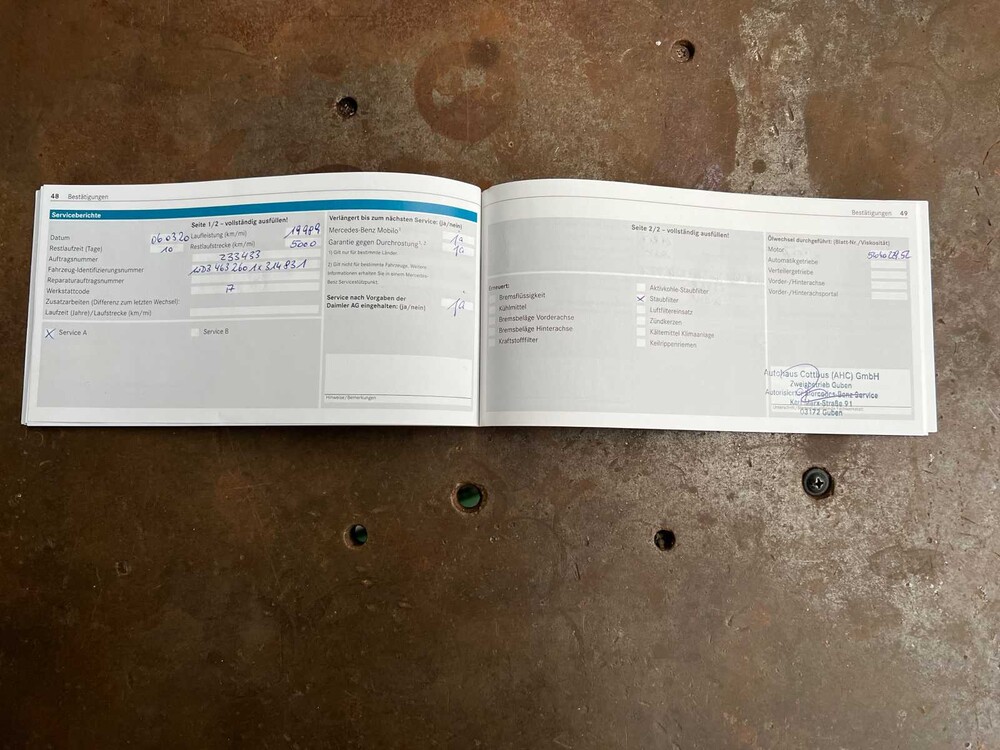 48 Bestätigungen
Serviceberichte
Seite 1/2 – vollständig ausfüllen!
Datum 06 03 20 Laufleistung (km/mi) 19989
Restlaufzeit (Tage) 10 Restlaufstrecke (km/mi) 5000
Auftragsnummer 233433
Fahrzeug-Identifizierungsnummer
Reparaturauftragsnummer
Werkstattcode 17
Zusatzarbeiten (Differenz zum letzten Wechsel):
Laufzeit (Jahre)/Laufstrecke (km/mi)
X Service A Service B
Verlängert bis zum nächsten Service: (ja/nein)
Mercedes-Benz Mobilo¹ ja
Garantie gegen Durchrostung¹, ² ja
1) Gilt nur für bestimmte Länder.
2) Gilt nicht für bestimmte Fahrzeuge. Weitere
Informationen erhalten Sie in einem Mercedes-
Benz Servicestützpunkt.
Service nach Vorgaben der
Daimler AG eingehalten: (ja/nein) ja
Hinweise/Bemerkungen
Bestätigungen 49
Seite 2/2 – vollständig ausfüllen!
Erneuert:
Bremsflüssigkeit
Kühlmittel
Bremsbeläge Vorderachse
Bremsbeläge Hinterachse
Kraftstofffilter
Aktivkohle-Staubfilter
X Staubfilter
Luftfiltereinsatz
Zündkerzen
Kältemittel Klimaanlage
Keilrippenriemen
Ölwechsel durchgeführt: (Blatt-Nr./Viskosität)
Motor
Automatikgetriebe
Verteilergetriebe
Vorder-/Hinterachse
Vorder-/Hinterachsportal
Autohaus Cottbus (AHC) GmbH
Zweigbetrieb Guben
Autorisierter Mercedes-Benz Service
Karl-Marx-Straße 91
03172 Guben